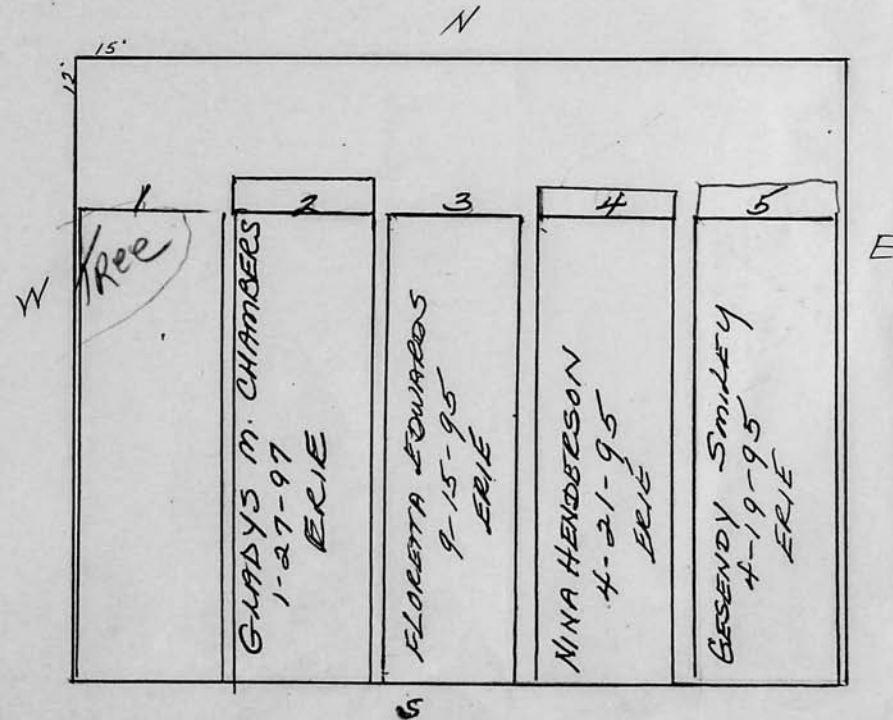 N
15'
12'
1
2
3
4
5
Tree
W
E
GLADYS M. CHAMBERS
1-27-97
ERIE
FLORETTA EDWARDS
9-15-95
ERIE
NINA HENDERSON
4-21-95
ERIE
GESENDY SMILEY
4-19-95
ERIE
S